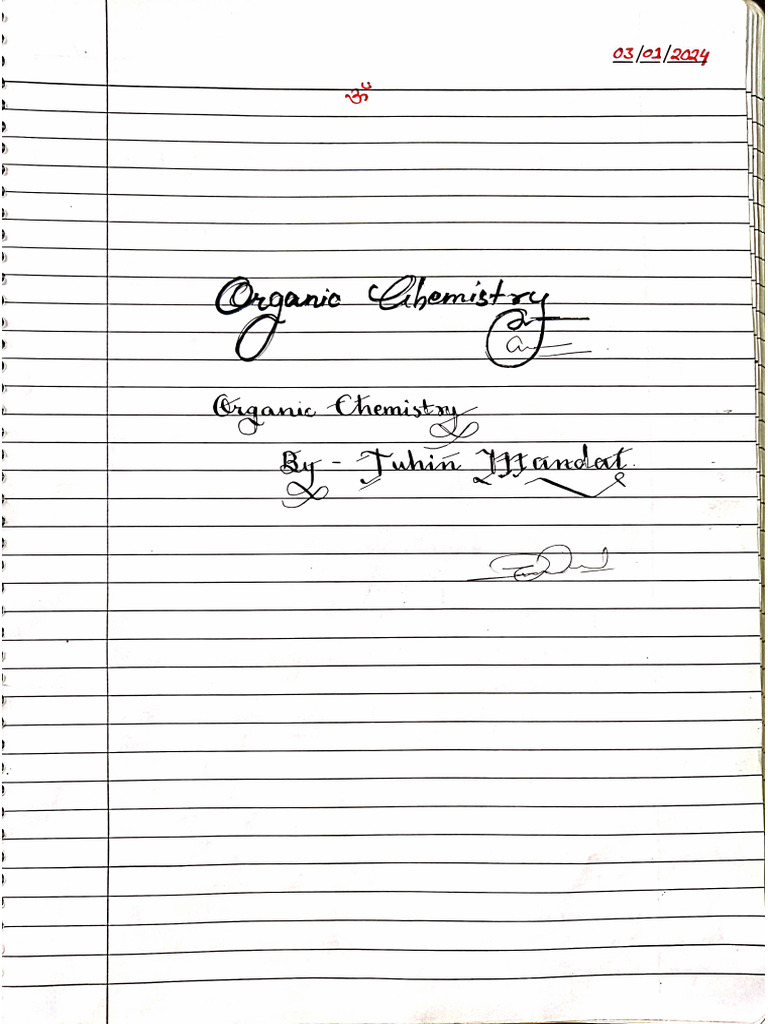 03/01/2024
ॐ
Organic Chemistry
Organic Chemistry
By - Tuhin Mandal